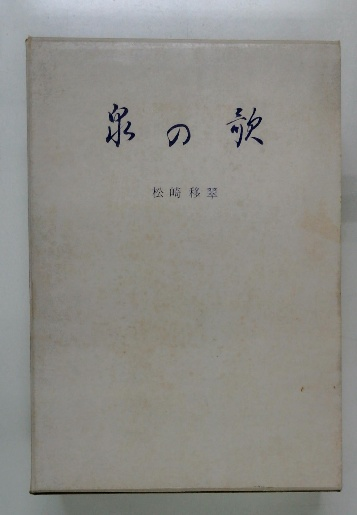 泉の歌
松崎移翠